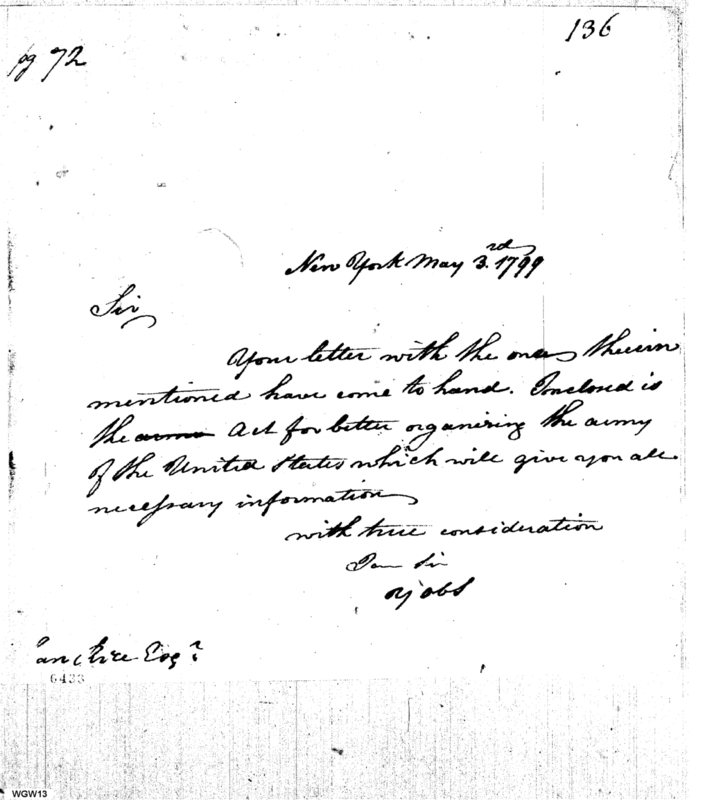 136
pg 72
New York May 3.rd 1799
Sir
Your letter with the ones therein
mentioned have come to hand. Inclosed is
the army Act for better organizing the army
of the United States which will give you all
necessary information
with true consideration
I am Sir
yr obs
Esqr
6433
WGW13